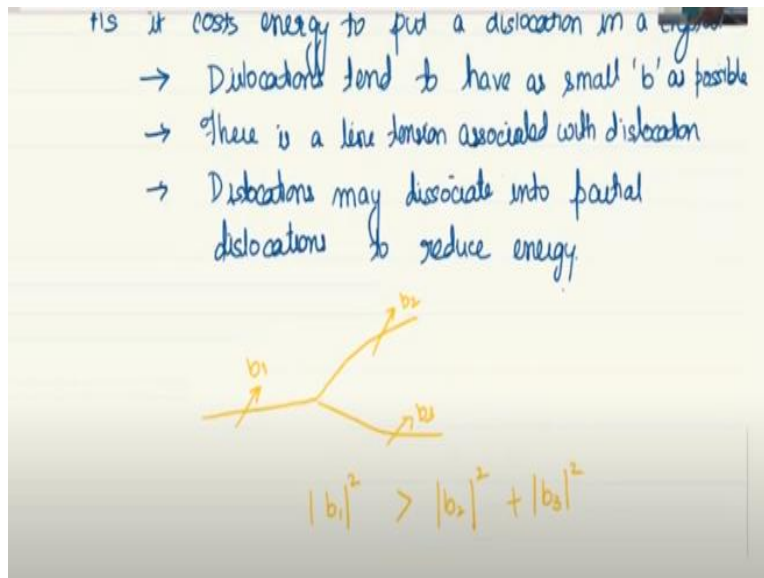 As it costs energy to put a dislocation in a crystal
→ Dislocations tend to have as small 'b' as possible
→ There is a line tension associated with dislocation
→ Dislocations may dissociate into partial
dislocations to reduce energy.
b₂
b₁
b₃
|b₁|² > |b₂|² + |b₃|²